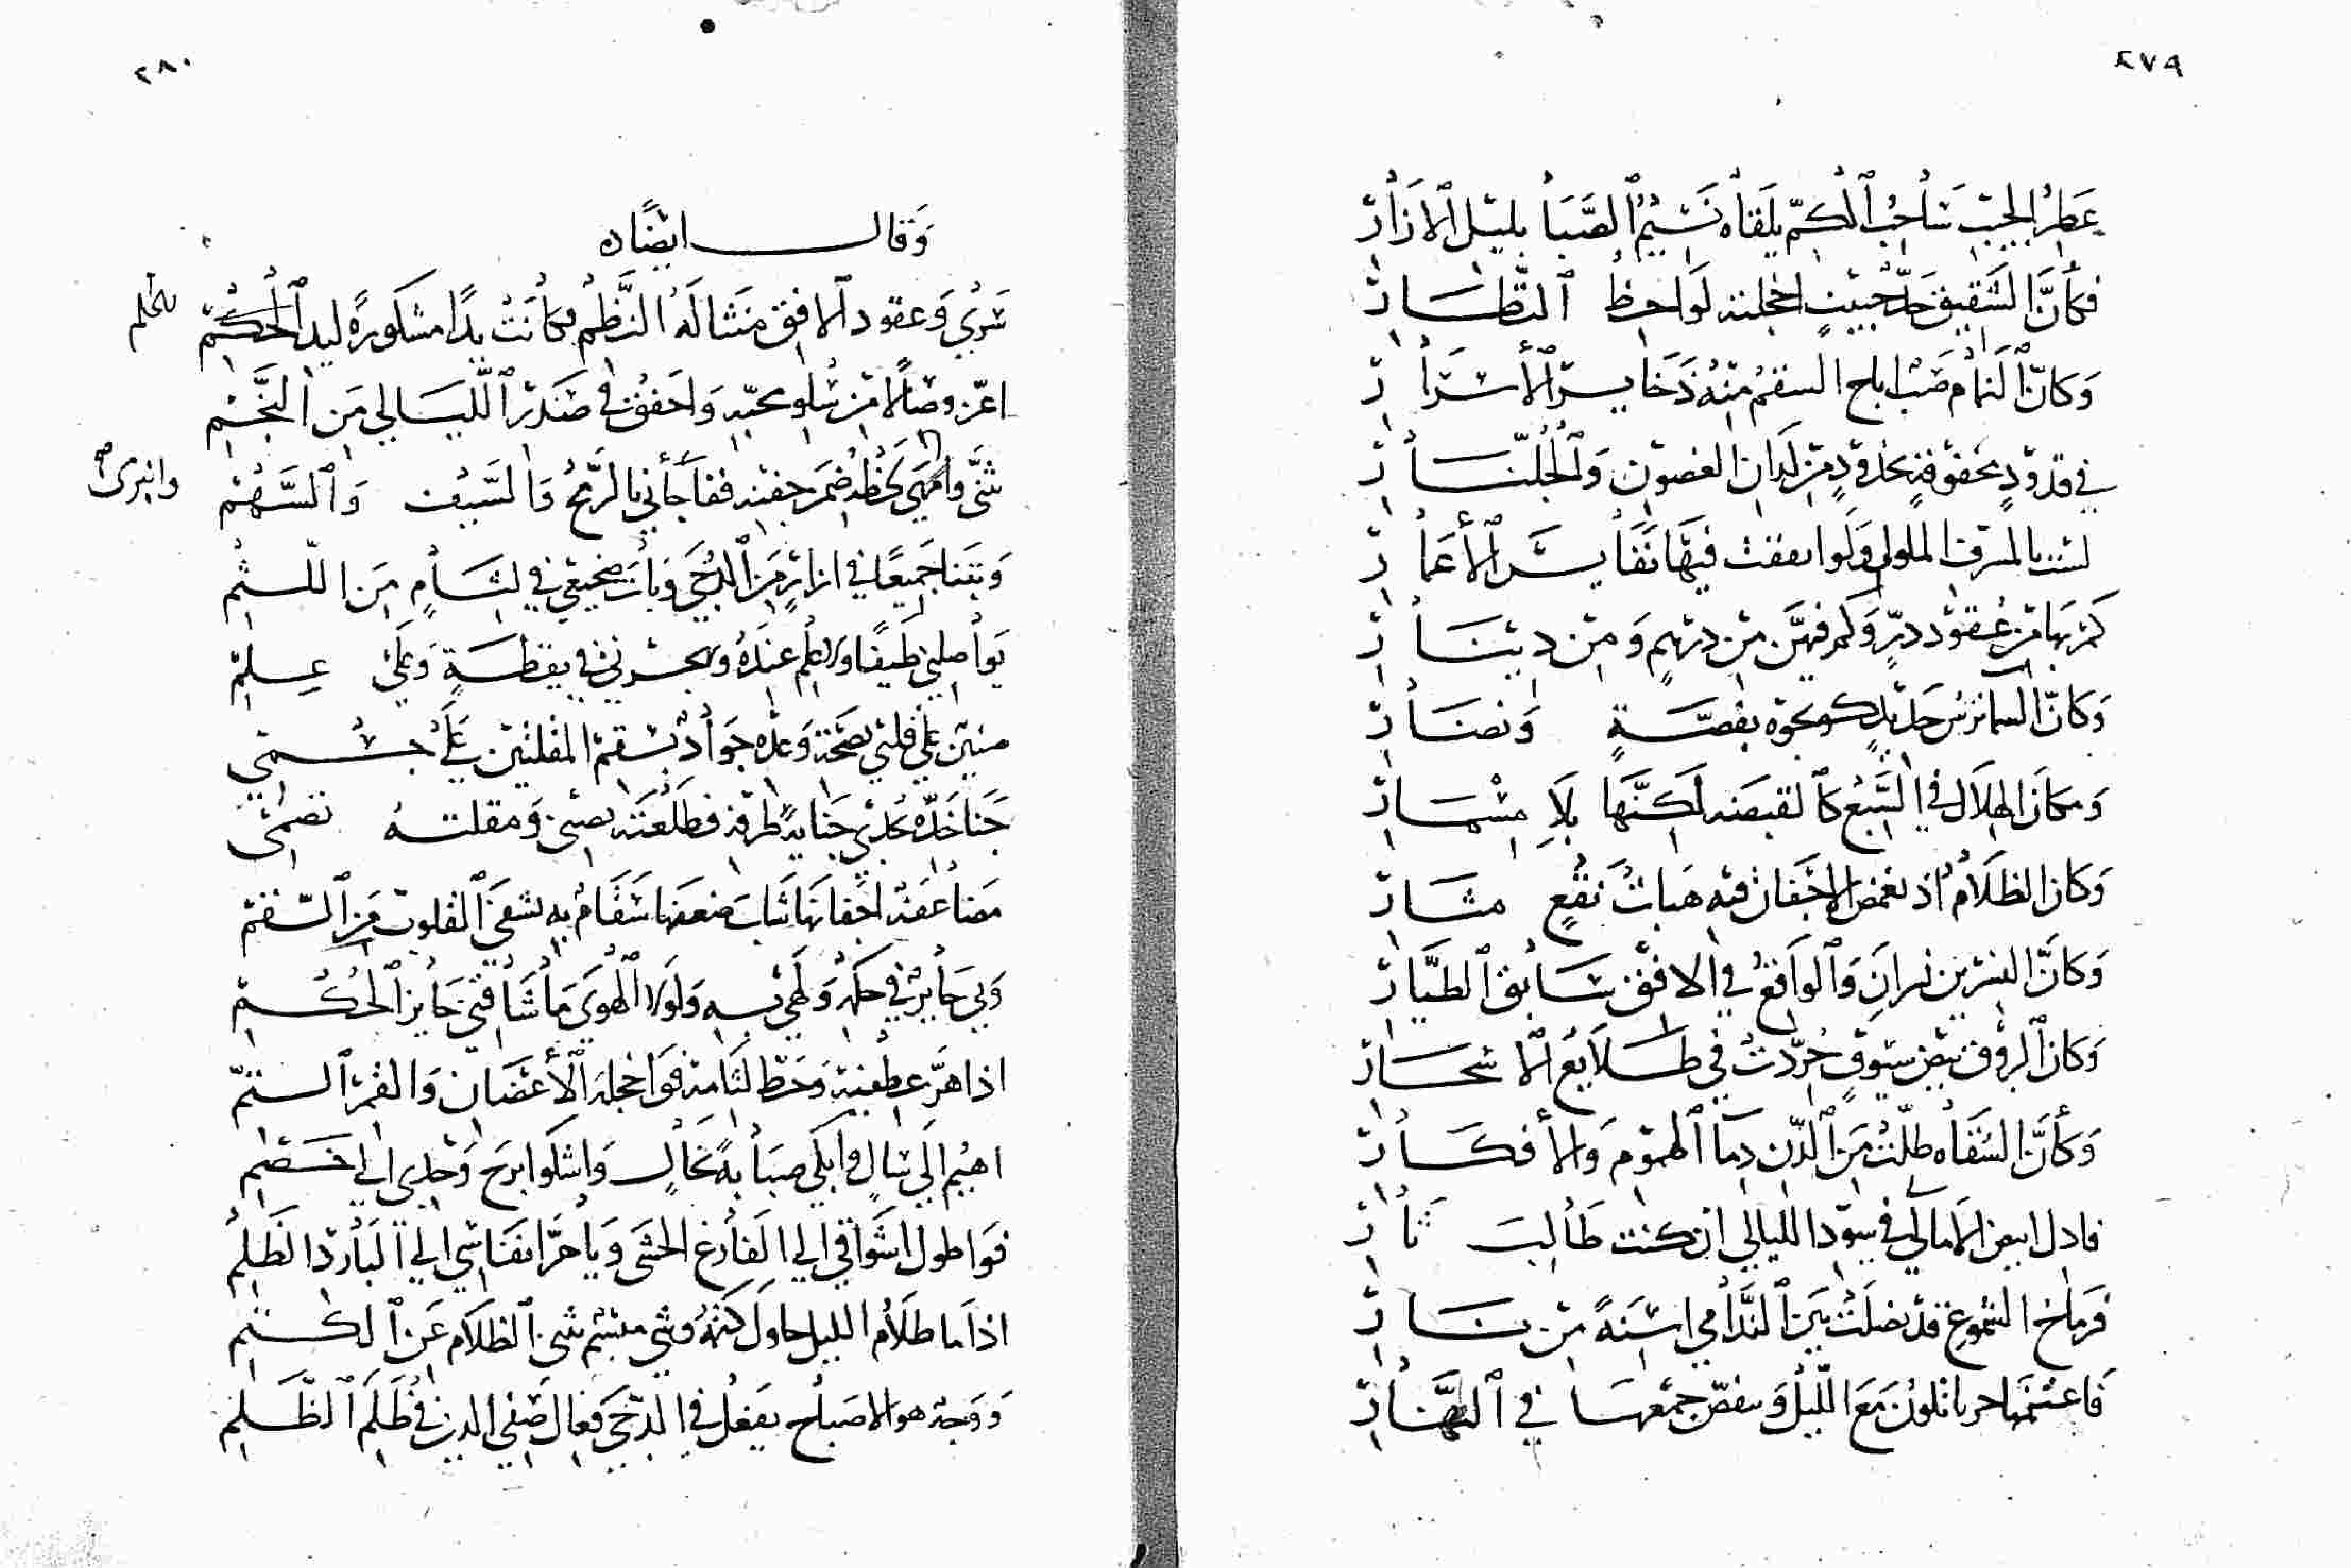 ٢٧٩
عَطِرُ الجيب سَاحب الكمّ يلقاه نَسِيْمُ الصَّبَا بليل الازار
فكأنَّ الشقيق خدّ حبيبٍ اخجلته لواحظ النظار
وَكانّ النمام صب اباح السقم مِنْهُ ذَخايـر الأسْرار
في قدودٍ محفوفةٍ بخدودٍ من لدان الغصون وَالجلّنار
لست بالمسرف الملول وَلو انفقت فيها نَفَايسَ الأعمار
كمْ بهَا من عُقود درٍّ وَكم فيهنّ من درهمٍ وَمن دينار
وَكانّ السما بفضةٍ وَنضار
وَكانَ الهلال في السَّبع كالقبضَه لكنَّها بلا مِسْمَار
وَكان الظلام اذ تغمض الاجفان فيه هَبَات نَقْعٍ مثار
وَكانَّ النسرين نسرانِ وَالواقعُ في الافق سَابق الطيّار
وَكان البروق بيض سيوفٍ جُرّدتْ في طلايع الاسحار
وَكأنّ السُقاه طلّت مِنَ الدّن دمآ الهموم وَالأفكار
فادل ابيض الامالى في سود الليالي ان كنت طَالبَ ثار
فرماح الشموع قد نصلت بين النَّدامي اسنةً من نار
فَاغتنمها حربا تكون مَعَ الليل وَينفضّ جمعها في النَّهَار
٢٨٠
وَقال ايضًاه
سَرى وَعقود الافق مَنثاله النَّظْم فكانت يدًا مشكورةً ليد الحُكْم
للحلم
اعزّ وصَالًا من سُلو محبّهِ وَاخفق في صَدر اللّيَالي مِن النَّجْم
ثنَّى وا لحظهُ ضمرَ جفنه ففاجأني بالرّمح وَالسّيف وَالسَّهْم
وانبرى
وَبتنا جَميعًا في ازارٍ مِنَ الدُجَى وَبات ضجيعي في لثامٍ مِنَ اللّثم
يوَاصلني طيفًا وَلا عِلْم عنده وَيهجرني في يقظةٍ وَعَلى عِلم
على قلبي بصحّة وَعده جوَاد بسقم المقلتين عَلَى جسْمي
جَنا خَدّه يجدي جَنا يد طرفه فطلعَته تصبى وَمقلته تصْمى
مضاعفة اجفانهَا شاب ضعفها سَقَام به تشفى القلوب مِنَ السّقم
وَبي جَاير في حكمهِ وَلهي به وَلَولا الهوَى مَا شَاقنى جَاير الحُكم
اذا هَزّ عطفيه وَحَط لثامه فوَاخجلة الأغصَان وَالقمر التّمّ
اهيُم الى سالٍ وَابكى صبَابةً بخالٍ وَاشكوا برح وَجدى الى خصم
فوَا طول اشوَاقي الي الفَارغ الحشى وَيا حَرَّ انفَاسي الي البَارد الظلم
اذا ما ظلام الليل حاول كتمهُ وشى مبْسم شق الظلام عَن الكتم
وَوَجه هو الاصبَاح يفعل في الدّجى فعال صَفى الدين في ظُلَم الظلم